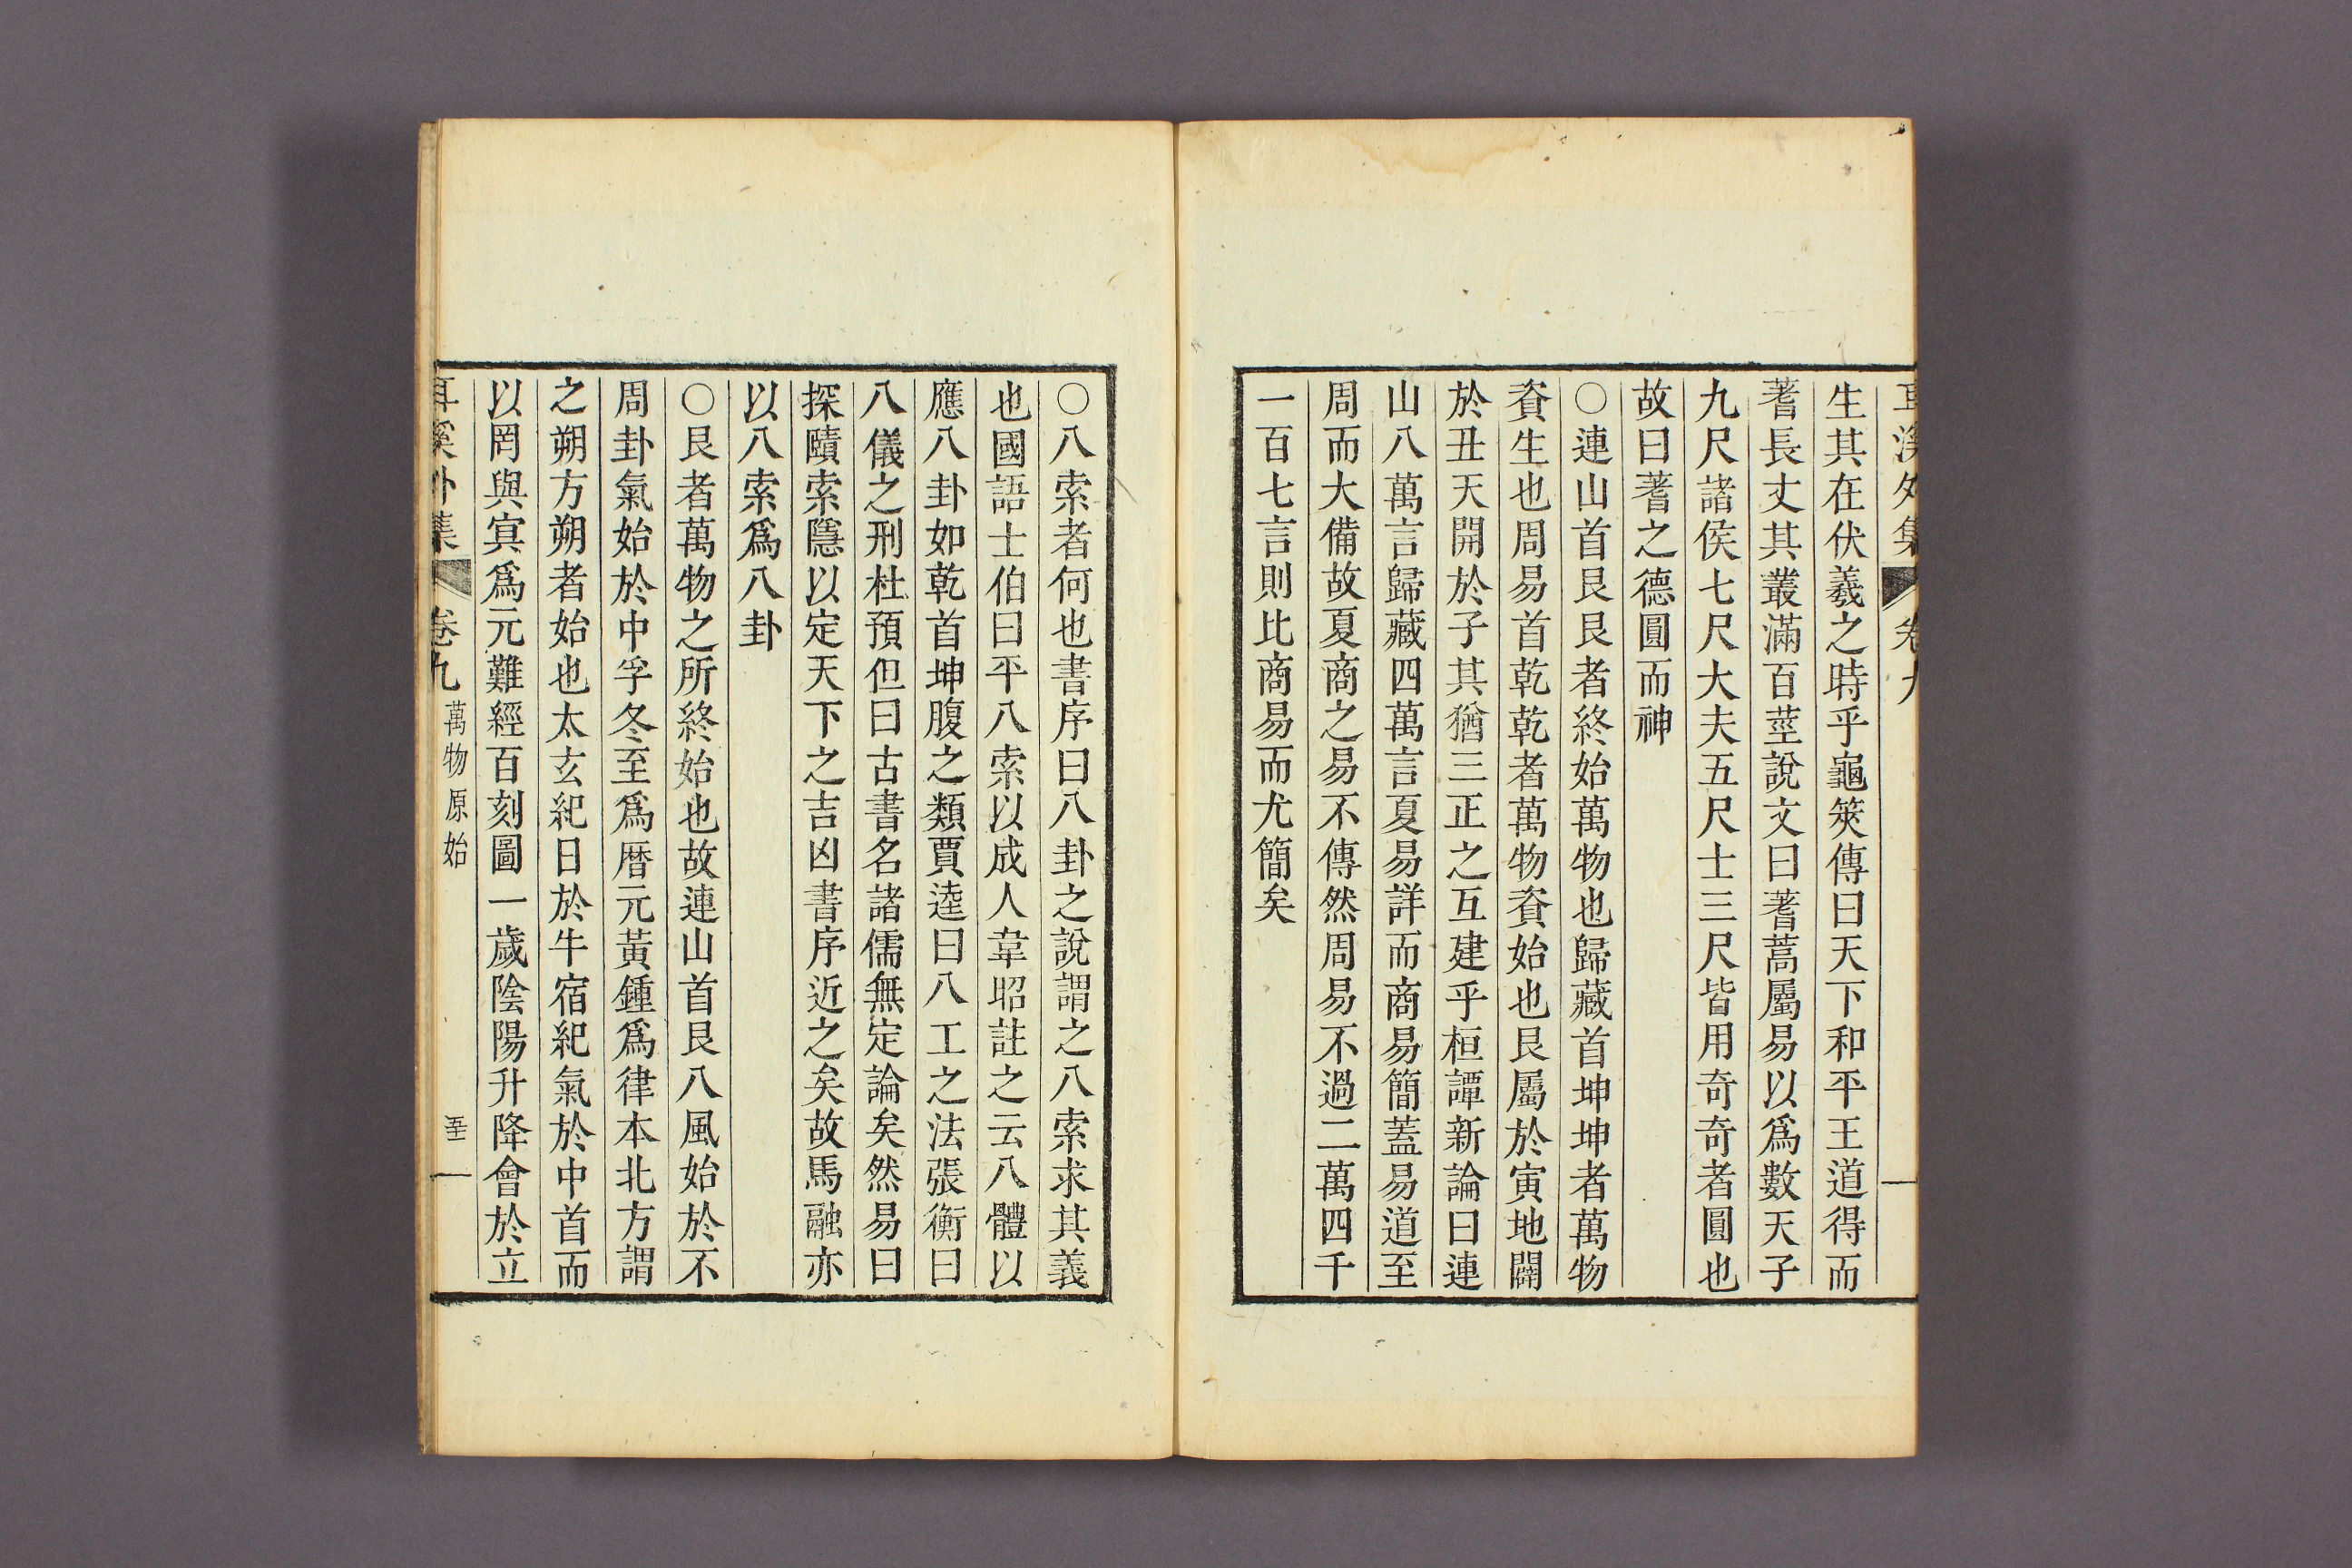 耳溪外集 卷九
生其在伏羲之時乎龜筴傳曰天下和平王道得而
蓍長丈其叢滿百莖說文曰蓍蒿屬易以爲數天子
九尺諸侯七尺大夫五尺士三尺皆用奇奇者圓也
故曰蓍之德圓而神
○連山首艮艮者終始萬物也歸藏首坤坤者萬物
資生也周易首乾乾者萬物資始也艮屬於寅地闢
於丑天開於子其猶三正之互建乎桓譚新論曰連
山八萬言歸藏四萬言夏易詳而商易簡蓋易道至
周而大備故夏商之易不傳然周易不過二萬四千
一百七言則比商易而尤簡矣
○八索者何也書序曰八卦之說謂之八索求其義
也國語士伯曰平八索以成人韋昭註之云八體以
應八卦如乾首坤腹之類賈逵曰八工之法張衡曰
八儀之刑杜預但曰古書名諸儒無定論矣然易曰
探賾索隱以定天下之吉凶書序近之矣故馬融亦
以八索爲八卦
○艮者萬物之所終始也故連山首艮八風始於不
周卦氣始於中孚冬至爲曆元黃鍾爲律本北方謂
之朔方朔者始也太玄紀日於牛宿紀氣於中首而
以罔與寘爲元難經百刻圖一歲陰陽升降會於立
耳溪外集 卷九 萬物原始